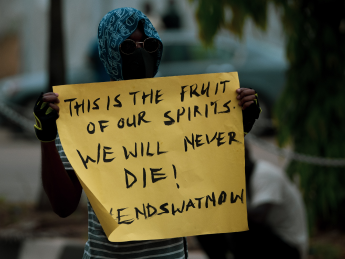 THIS IS THE FRUIT
OF OUR SPIRITS.
WE WILL NEVER
DIE!
ENDSWATNOW